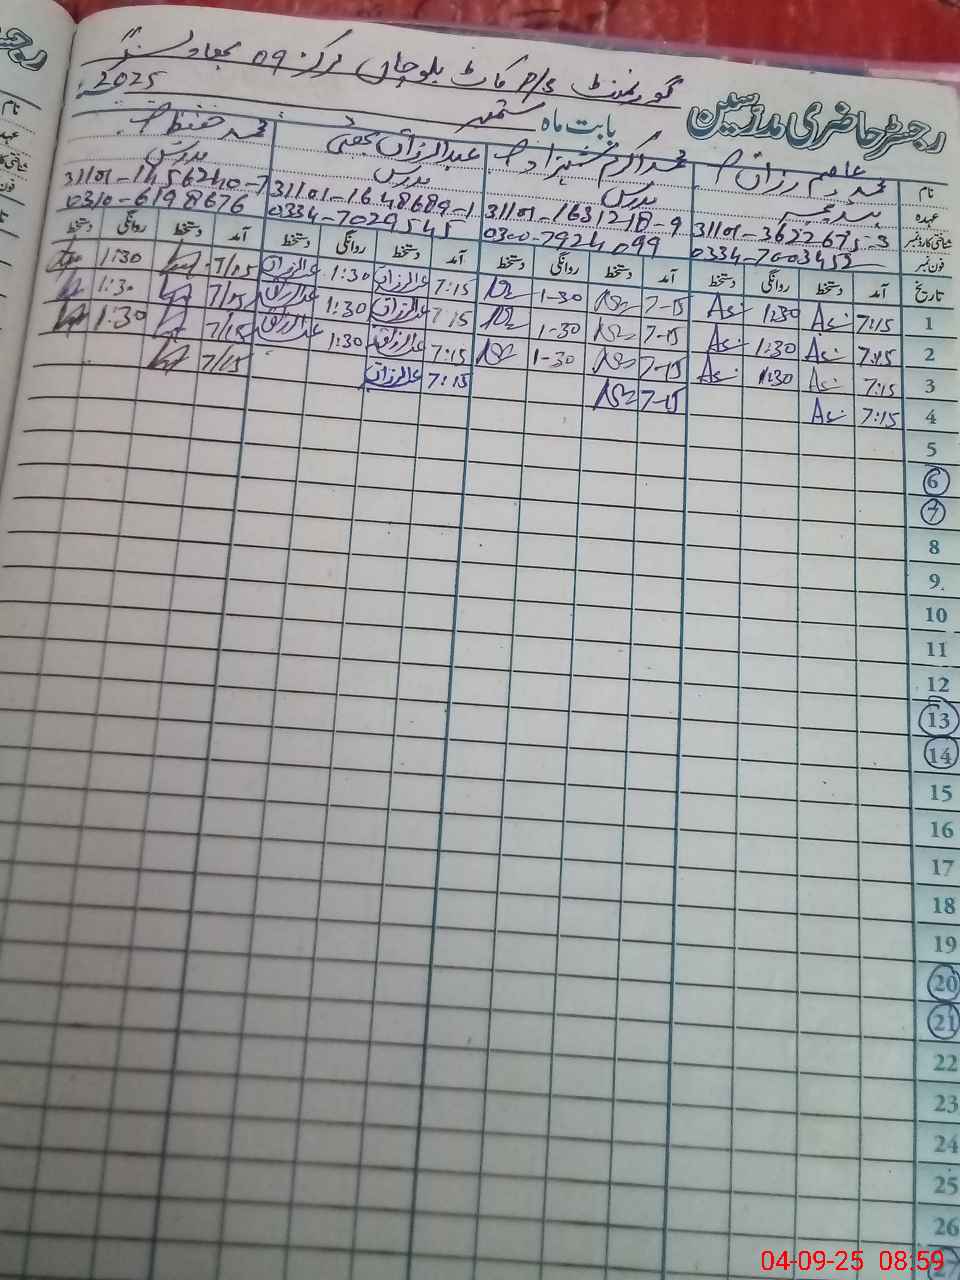 رجسٹر حاضری مدرسین
گورنمنٹ P/S کاٹ بلوچاں مرکز 09
بابت ماہ ستمبر 2025
نام
محمد عاصم رزاق
محمد اکرم شہزاد
عبدالرزاق بھٹی
محمد حفیظ
عہدہ
مدرس
مدرس
مدرس
شناختی کارڈ نمبر
31101-3622675-3
31101-1631218-9
31101-1648689-1
31101-1456240-7
فون نمبر
0334-7003452
0300-7924099
0334-7029545
0310-6198676
تاریخ آمد دستخط روانگی دستخط آمد دستخط روانگی دستخط آمد دستخط روانگی دستخط آمد دستخط روانگی دستخط
1 7:15 As 1:30 As 7-15 1-30 7:15 عبدالرزاق 1:30 عبدالرزاق 7/15 1:30
2 7:15 As 1:30 As 7-15 1-30 7:15 عبدالرزاق 1:30 عبدالرزاق 7/15 1:30
3 7:15 As 1:30 As 7-15 1-30 7:15 عبدالرزاق 1:30 عبدالرزاق 7/15 1:30
4 7:15 As 7-15 7:15 عبدالرزاق 7/15
5
6
7
8
9
10
11
12
13
14
15
16
17
18
19
20
21
22
23
24
25
26
27
04-09-25 08:59